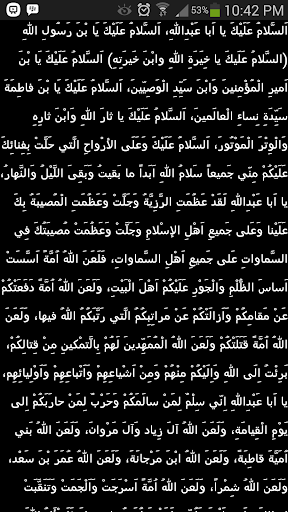 53% 10:42 PM
اَلسَّلامُ عَلَيْكَ يا اَبا عَبدِاللهِ، اَلسَّلامُ عَلَيْكَ يَا بْنَ رَسولِ اللهِ
(السَّلامُ عَلَيْكَ يا خِيَرَةِ اللهِ وابْنَ خِيَرَتِهِ) اَلسَّلامُ عَلَيْكَ يَا بْنَ
اَميرِ الْمُؤْمِنينَ وَابْنَ سَيِّدِ الْوَصِيّينَ، اَلسَّلامُ عَلَيْكَ يَا بْنَ فاطِمَةَ
سَيِّدَةِ نِساءِ الْعالَمينَ، اَلسَّلامُ عَلَيْكَ يا ثارَ اللهِ وَابْنَ ثارِهِ
وَالْوِتْرَ الْمَوْتُورَ، اَلسَّلامُ عَلَيْكَ وَعَلَى الاَْرواحِ الَّتي حَلَّتْ بِفِنائِكَ
عَلَيْكُمْ مِنّي جَميعاً سَلامُ اللهِ اَبَداً ما بَقيتُ وَبَقِيَ اللَّيْلُ وَالنَّهارُ،
يا اَبا عَبدِاللهِ لَقَدْ عَظُمَتِ الرَّزِيَّةُ وجَلَّتْ وعَظُمَتِ الْمُصيبَةُ بِكَ
عَلَيْنا وَعَلى جَميعِ اَهْلِ الاِْسْلامِ وَجَلَّتْ وَعَظُمَتْ مُصيبَتُكَ فِي
السَّماواتِ عَلى جَميعِ اَهْلِ السَّماواتِ، فَلَعَنَ اللهُ اُمَّةً اَسَّسَتْ
اَساسَ الظُّلْمِ وَالْجَوْرِ عَلَيْكُمْ اَهْلَ الْبَيْتِ، وَلَعَنَ اللهُ اُمَّةً دَفَعَتْكُمْ
عَنْ مَقامِكُمْ وَاَزالَتْكُمْ عَنْ مَراتِبِكُمُ الَّتي رَتَّبَكُمُ اللهُ فيها، وَلَعَنَ
اللهُ اُمَّةً قَتَلَتْكُمْ وَلَعَنَ اللهُ الْمُمَهِّدينَ لَهُمْ بِالَّتمْكينِ مِنْ قِتالِكُمْ،
بَرِئْتُ اِلَى اللهِ وَاِلَيْكُمْ مِنْهُمْ وَمِنْ اَشْياعِهِمْ وَاَتْباعِهِمْ وَاَوْلِيائِهِم،
يا اَبا عَبدِاللهِ اِنّي سِلْمٌ لِمَنْ سالَمَكُمْ وَحَرْبٌ لِمَنْ حارَبَكُمْ اِلى
يَوْمِ الْقِيامَةِ، وَلَعَنَ اللهُ آلَ زِيادٍ وَآلَ مَرْوانَ، وَلَعَنَ اللهُ بَني
اُمَيَّةَ قاطِبَةً، وَلَعَنَ اللهُ ابْنَ مَرْجانَةَ، وَلَعَنَ اللهُ عُمَرَ بْنَ سَعْدٍ،
وَلَعَنَ اللهُ شِمْراً، وَلَعَنَ اللهُ اُمَّةً اَسْرَجَتْ وَاَلْجَمَتْ وَتَنَقَّبَتْ